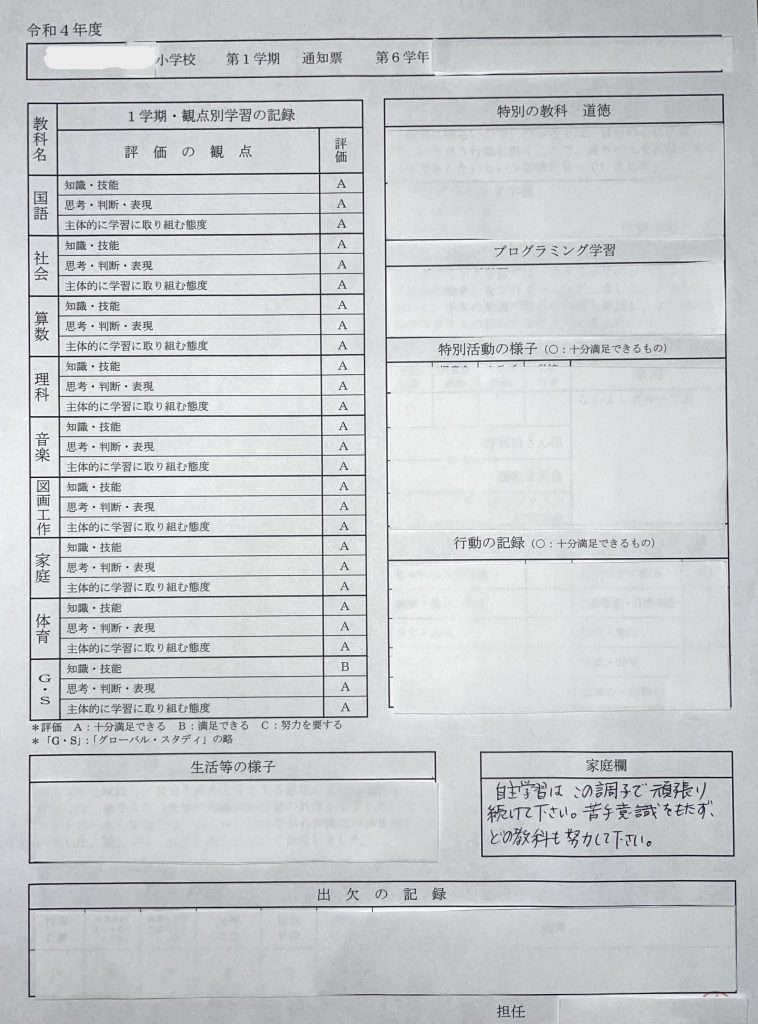 令和４年度
小学校　第１学期　通知票　第６学年
教科名　１学期・観点別学習の記録
評価の観点　評価
国語
知識・技能　A
思考・判断・表現　A
主体的に学習に取り組む態度　A
社会
知識・技能　A
思考・判断・表現　A
主体的に学習に取り組む態度　A
算数
知識・技能　A
思考・判断・表現　A
主体的に学習に取り組む態度　A
理科
知識・技能　A
思考・判断・表現　A
主体的に学習に取り組む態度　A
音楽
知識・技能　A
思考・判断・表現　A
主体的に学習に取り組む態度　A
図画工作
知識・技能　A
思考・判断・表現　A
主体的に学習に取り組む態度　A
家庭
知識・技能　A
思考・判断・表現　A
主体的に学習に取り組む態度　A
体育
知識・技能　A
思考・判断・表現　A
主体的に学習に取り組む態度　A
G・S
知識・技能　B
思考・判断・表現　A
主体的に学習に取り組む態度　A
＊評価　A：十分満足できる　B：満足できる　C：努力を要する
＊「G・S」：「グローバル・スタディ」の略
特別の教科　道徳
プログラミング学習
特別活動の様子（○：十分満足できるもの）
行動の記録（○：十分満足できるもの）
生活等の様子
家庭欄
自主学習は この調子で頑張り
続けて下さい。苦手意識をもたず、
どの教科も努力して下さい。
出欠の記録
担任